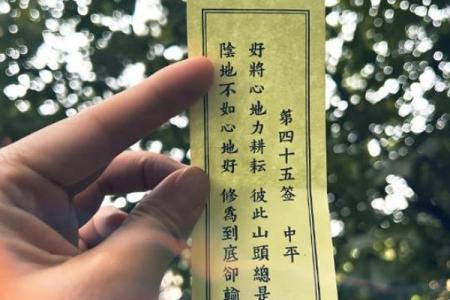 第四十五签 中平
好將心地力耕耘 彼此山頭總是
陰地不如心地好 修爲到底卻輸